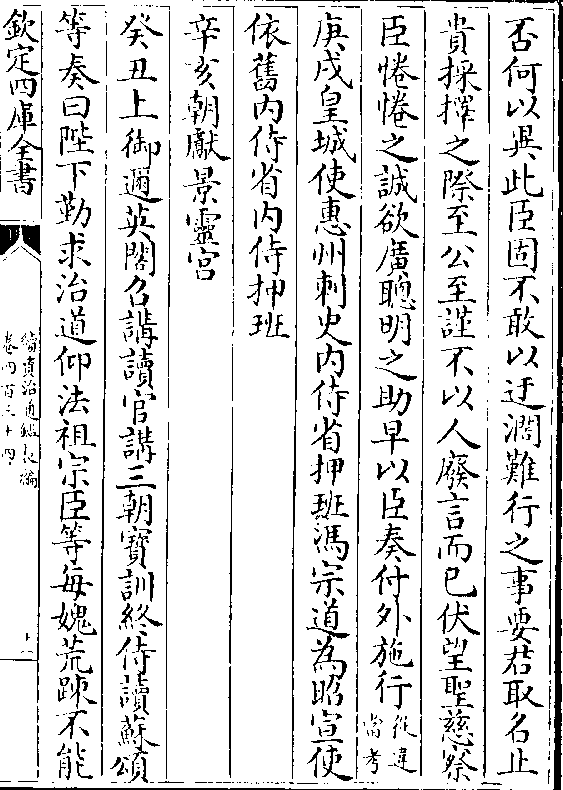 否何以異此臣固不敢以迂濶難行之事要君取名止
貴採擇之際至公至謹不以人廢言而已伏望聖慈察
臣惓惓之誠欲廣聰明之助早以臣奏付外施行從違當考
庚戌皇城使惠州刺史内侍省押班馮宗道為昭宣使
依舊内侍省内侍押班
辛亥朝獻景靈宫
癸丑上御邇英閣召講讀官講三朝寶訓終侍讀蘇頌
等奏曰陛下勤求治道仰法祖宗臣等每媿荒疎不能
欽定四庫全書
續資治通鑑長編
卷四百三十四